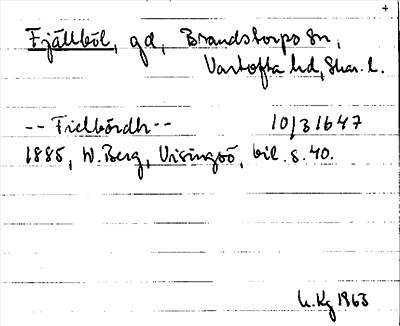 +
Fjällböl, gd, Brandstorps sn,
Vartofta hd, Skar. l.
-- Fielbördh -- 10/3 1647
1885, W. Berg, Visingsö, bil. s. 40.
U. Kg 1963